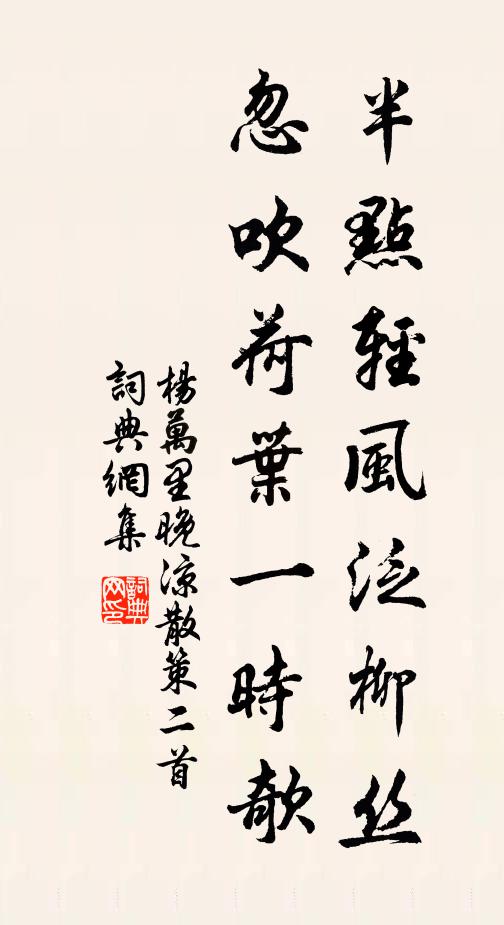 半點輕風泛柳絲
忽吹荷葉一時欹
楊萬里晚涼散策二首
詞典網集
詞典網印